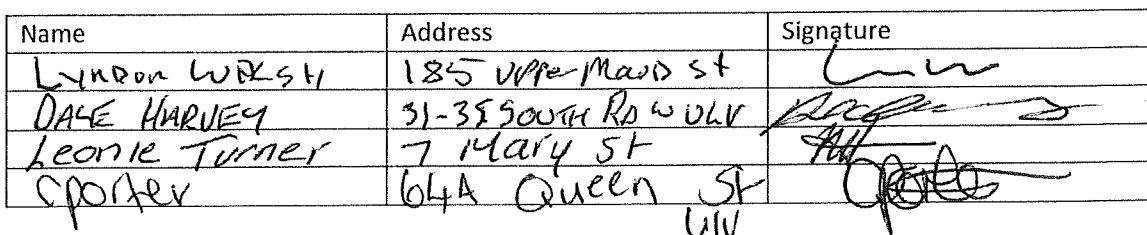 Name Address Signature
Lyndon WALSH 185 Upper Maud St
DALE HARVEY 31-35 SOUTH RD W ULV
Leonie Turner 7 Mary St
Cporter 64A Queen St Cporter
ULV